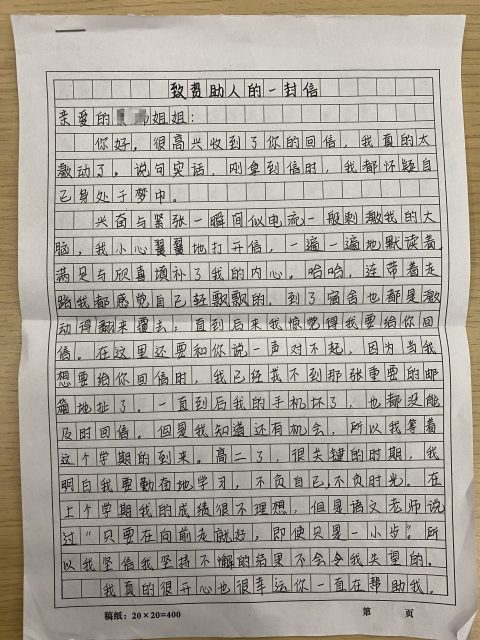 致资助人的一封信
亲爱的 姐姐:
你好。很高兴收到了你的回信,我真的太
激动了。说句实话,刚拿到信时,我都怀疑自
己身处于梦中。
兴奋与紧张一瞬间似电流一般刺激我的大
脑,我小心翼翼地打开信,一遍一遍地默读着,
满足与欣喜填补了我的内心。哈哈,连带着走
路我都感觉自己轻飘飘的。到了宿舍也都是激
动得翻来覆去,直到后来我惊觉得我要给你回
信。在这里还要和你说一声对不起,因为当我
想要给你回信时,我已经找不到那张重要的邮
箱地址了。一直到后我的手机坏了,也都没能
及时回信。但是我知道还有机会,所以我等着
这个学期的到来。高二了,很关键的时期,我
明白我要勤奋地学习,不负自己,不负时光。在
上个学期我的成绩很不理想,但是语文老师说
过“只要在向前走就好,即使只是一小步”。所
以我坚信我坚持不懈的结果不会令我失望的。
我真的很开心也很幸运你一直在帮助我。
稿纸:20×20=400 第 页